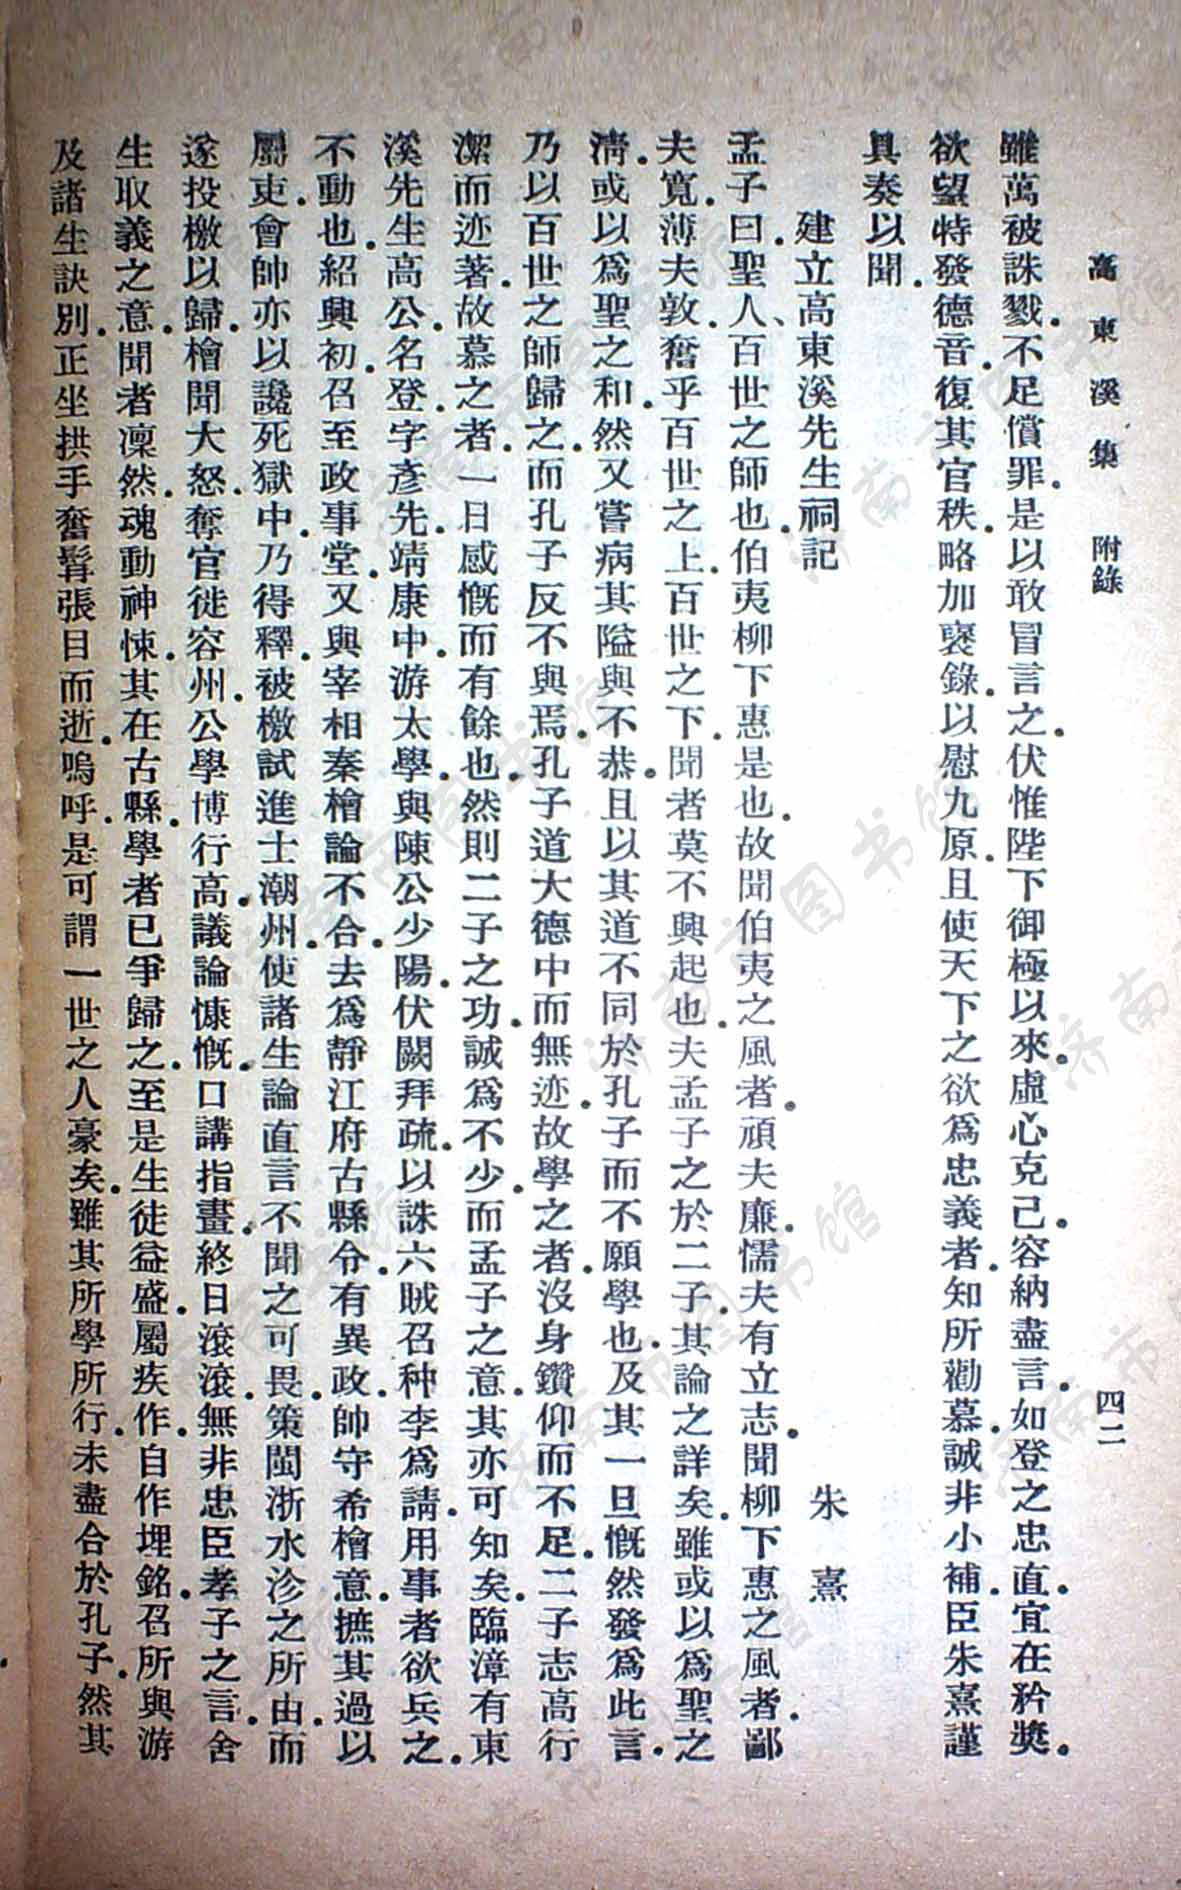 高東溪集　附錄　四二
雖萬被誅戮．不足償罪．是以敢冒言之．伏惟陛下御極以來．虛心克己．容納盡言．如登之忠直．宜在矜獎．
欲望特發德音．復其官秩．略加褒錄．以慰九原．且使天下之欲爲忠義者．知所勸慕．誠非小補．臣朱熹謹
具奏以聞．
建立高東溪先生祠記　朱熹
孟子曰．聖人、百世之師也．伯夷柳下惠是也．故聞伯夷之風者．頑夫廉．懦夫有立志．聞柳下惠之風者．鄙
夫寬．薄夫敦．奮乎百世之上．百世之下．聞者莫不興起也．夫孟子之於二子．其論之詳矣．雖或以爲聖之
清．或以爲聖之和．然又嘗病其隘與不恭．且以其道不同於孔子而不願學也．及其一旦慨然發爲此言．
乃以百世之師歸之．而孔子反不與焉．孔子道大德中而無迹．故學之者．沒身鑽仰而不足．二子志高行
潔而迹著．故慕之者．一日感慨而有餘也．然則二子之功．誠爲不少．而孟子之意．其亦可知矣．臨漳有東
溪先生高公．名登．字彥先．靖康中．游太學．與陳公少陽．伏闕拜疏．以誅六賊召种李爲請．用事者欲兵之．
不動也．紹興初．召至政事堂．又與宰相秦檜論不合．去爲靜江府古縣令．有異政．帥守希檜意．摭其過以
屬吏．會帥亦以讒死獄中．乃得釋．被檄試進士潮州．使諸生論直言不聞之可畏．策閩浙水沴之所由．而
遂投檄以歸．檜聞大怒．奪官徙容州．公學博行高．議論慷慨．口講指畫．終日滾滾．無非忠臣孝子之言．舍
生取義之意．聞者凜然．魂動神悚．其在古縣．學者已爭歸之．至是生徒益盛．屬疾作．自作埋銘．召所與游
及諸生訣別．正坐拱手．奮髯張目而逝．嗚呼．是可謂一世之人豪矣．雖其所學所行．未盡合於孔子．然其